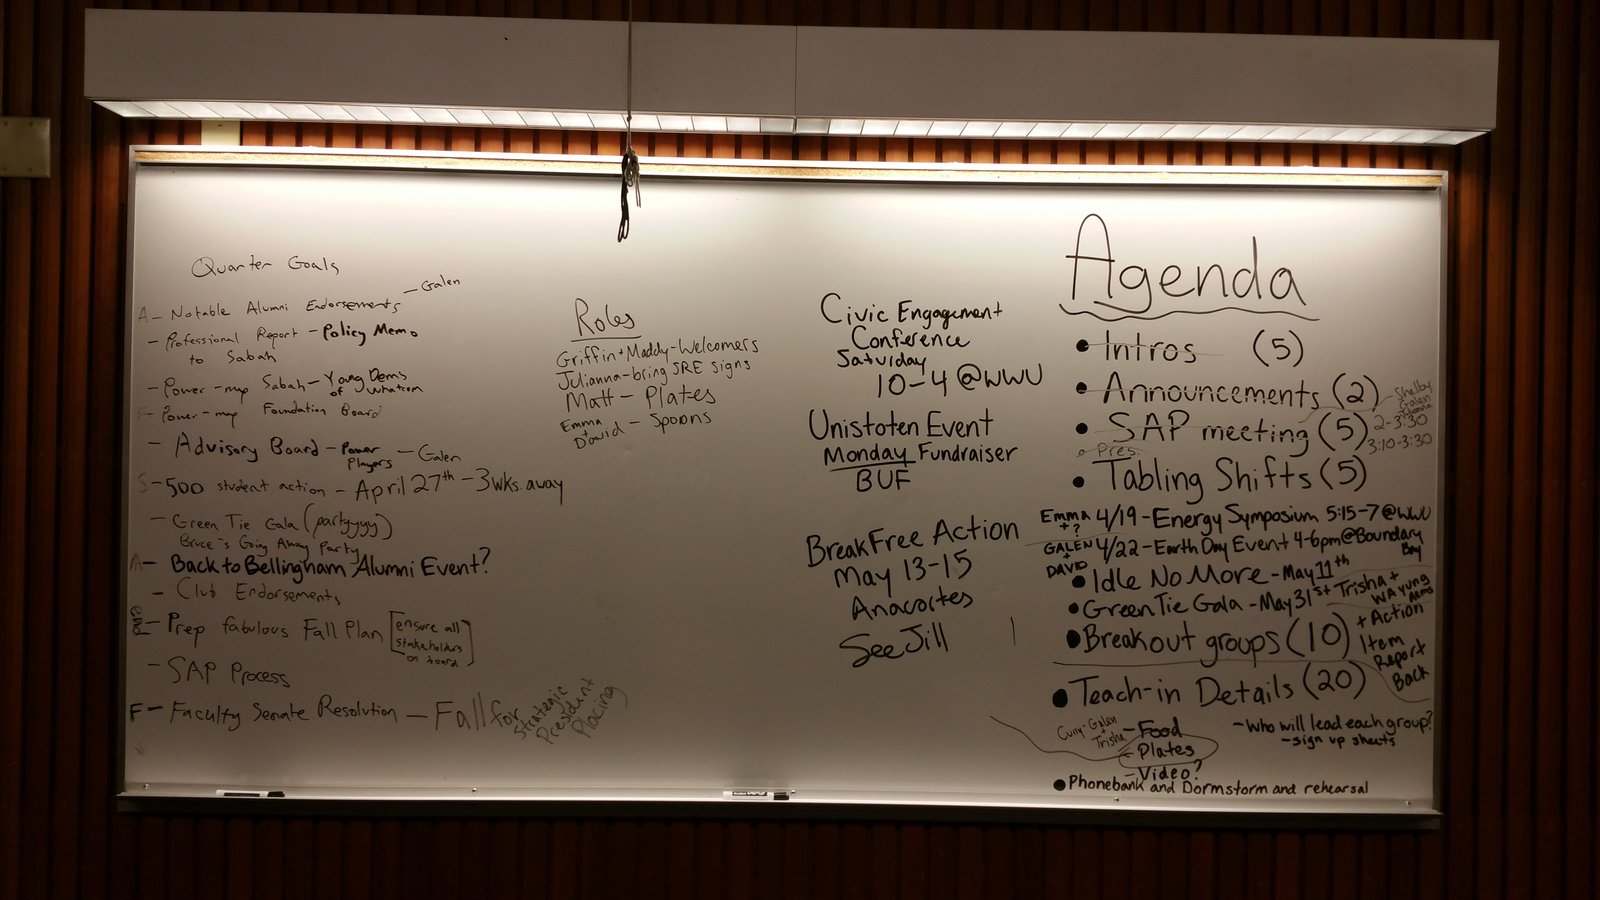 Quarter Goals
A - Notable Alumni Endorsements - Galen
- Professional Report - Policy Memo
to Sabah
- Power-map Sabah - Young Dems
of Whatcom
F - Power-map Foundation Board
- Advisory Board - Power
Players - Galen
S - 500 student action - April 27th - 3wks. away
- Green Tie Gala (partyyyy)
Bruce's Going Away Party
A - Back to Bellingham Alumni Event?
- Club Endorsements
- Prep fabulous Fall Plan [ensure all
stakeholders
on board]
- SAP Process
F - Faculty Senate Resolution - Fall for
Strategic
President
Placing
Roles
Griffin + Maddy - Welcomers
Julianna - bring SRE signs
Matt - Plates
Emma
+
David - Spoons
Civic Engagement
Conference
Saturday
10-4 @WWU
Unistoten Event
Monday Fundraiser
BUF
Break Free Action
May 13-15
Anacortes
See Jill
Agenda
• Intros (5)
• Announcements (2)
Shelby
Galen
• SAP meeting (5)
2-3:30
3:10-3:30
• Pres.
• Tabling Shifts (5)
Emma
+ ?
4/19 - Energy Symposium 5:15-7 @WWU
GALEN
+
DAVID
4/22 - Earth Day Event 4-6pm @ Boundary
Bay
• Idle No More - May 11th
• Green Tie Gala - May 31st Trisha +
• Breakout groups (10)
+ Action
Item
Report
Back
• Teach-in Details (20)
Curry - Galen
Trisha
- Food
- Plates
- Video?
- Who will lead each group?
- sign up sheets
• Phonebank and Dormstorm and rehearsal